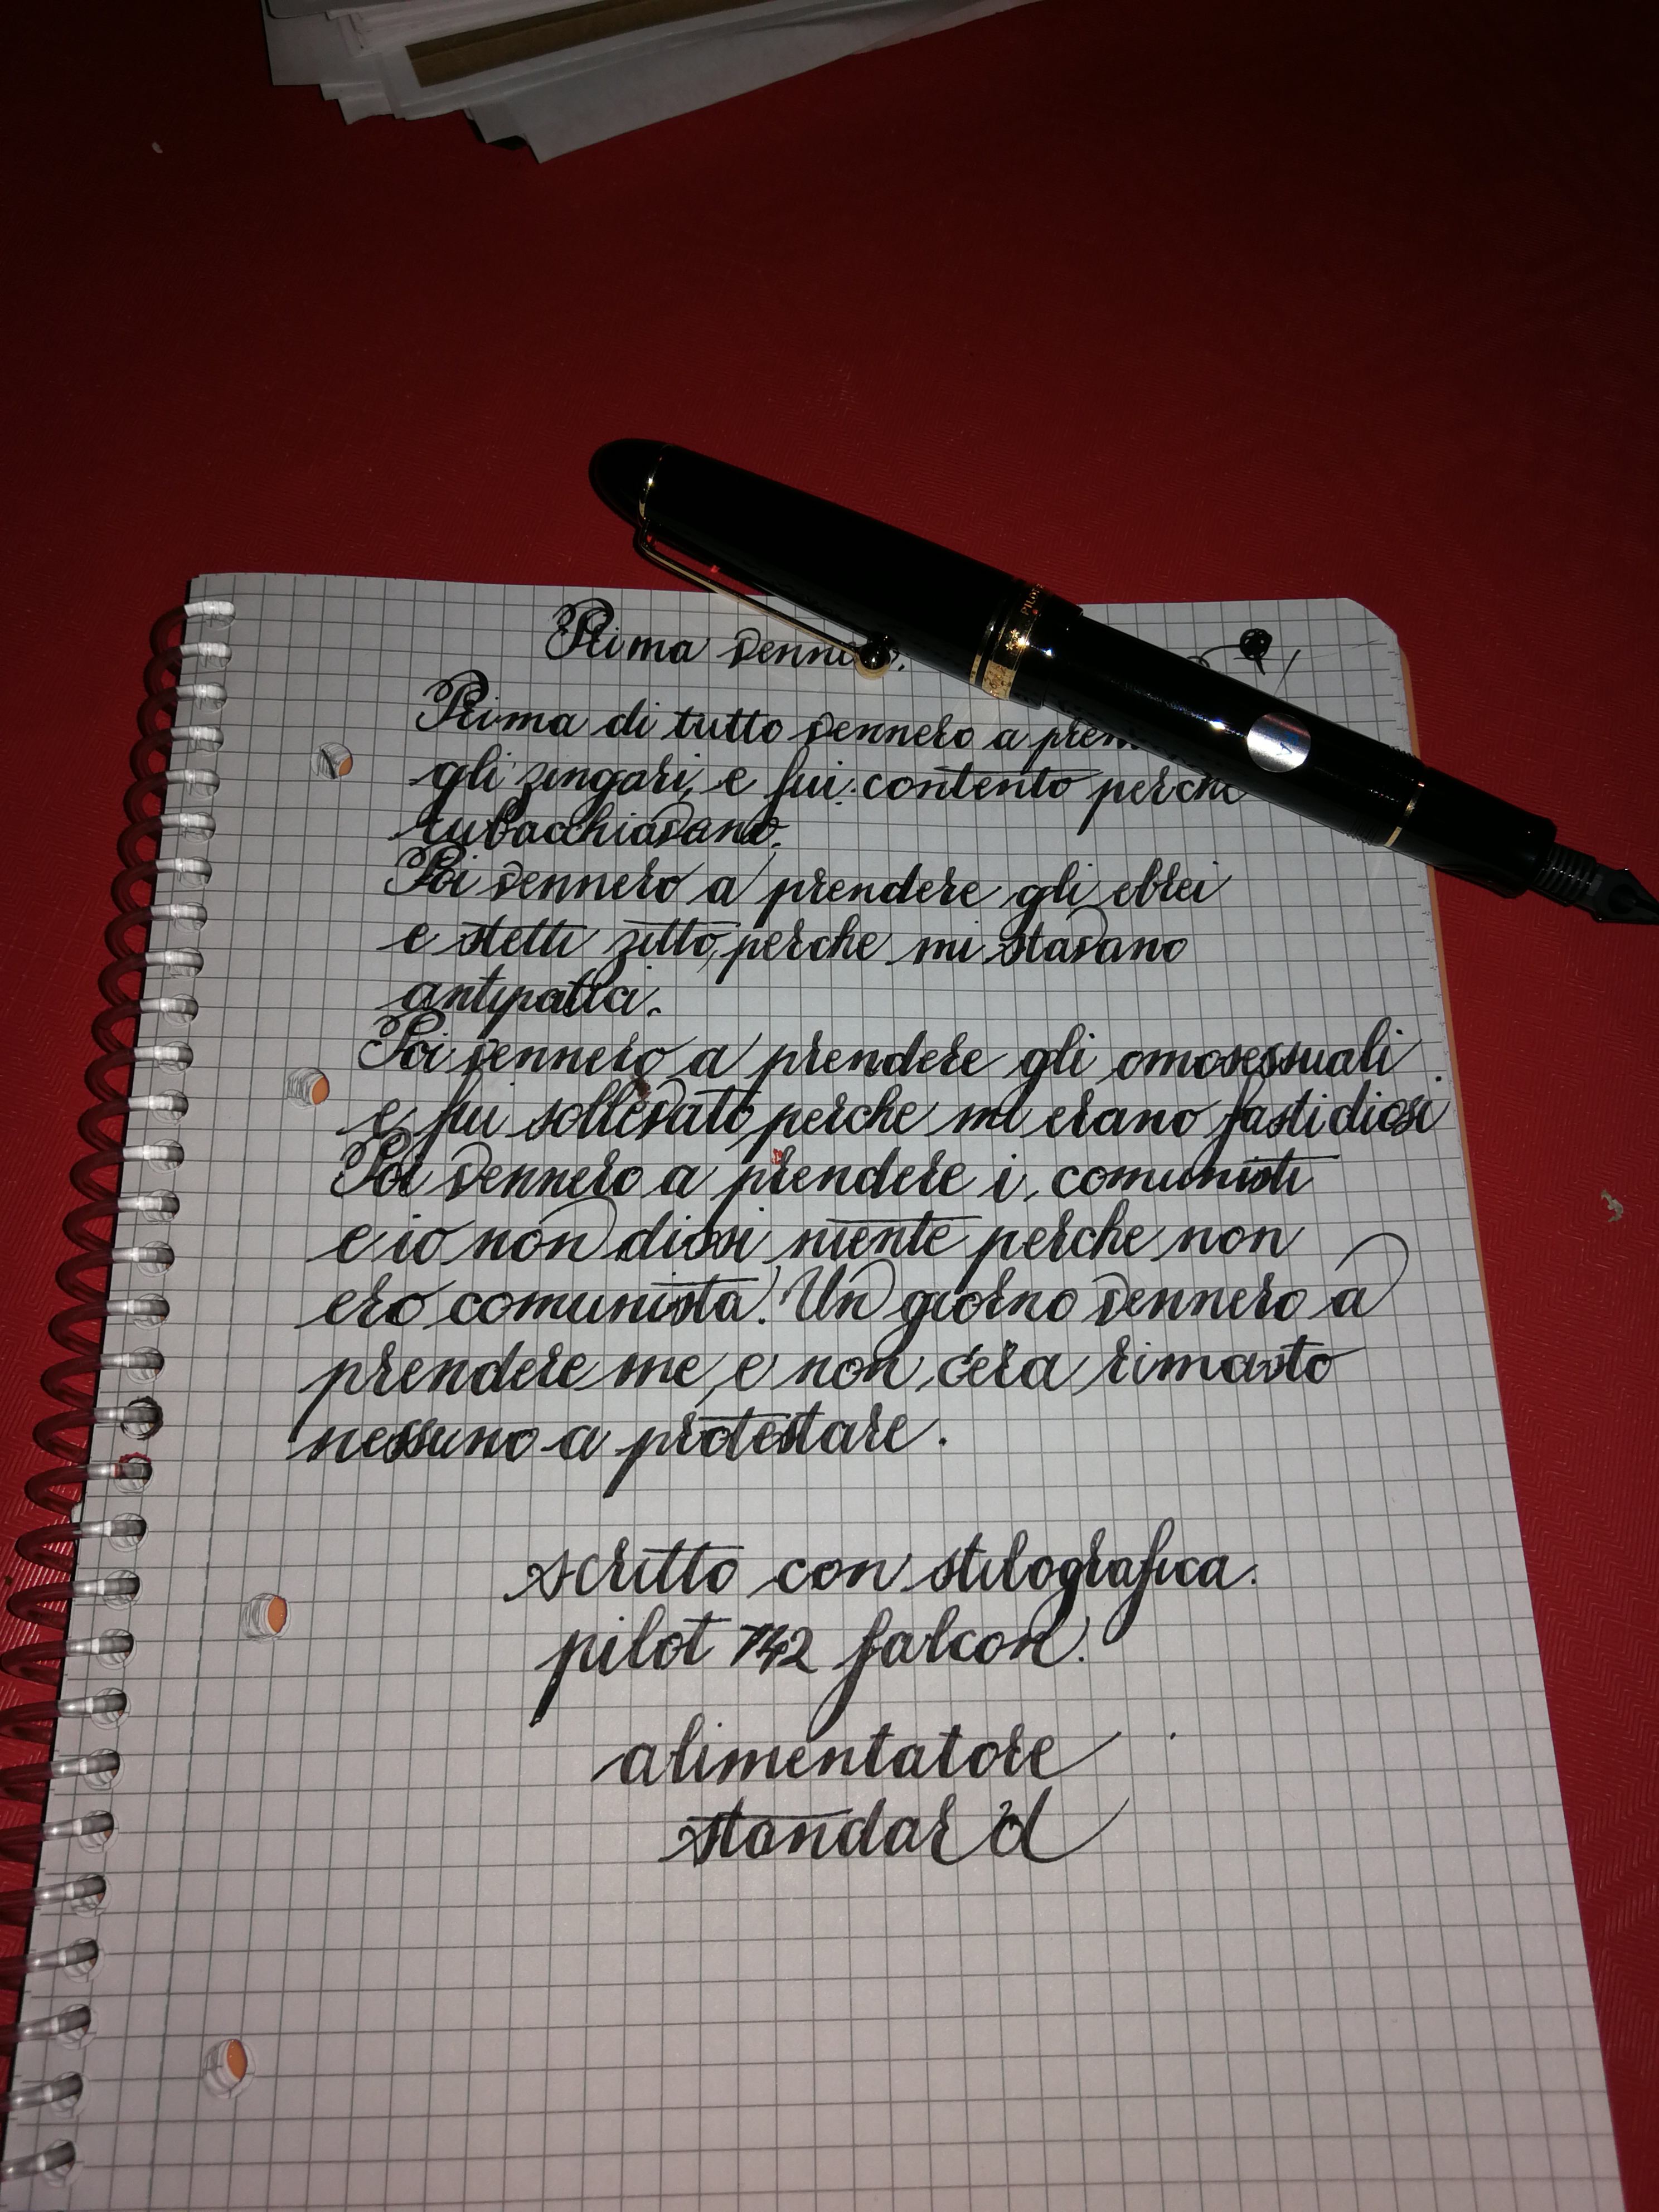 Prima
Prima di tutto vennero a
gli zingari, e fui contento perche
rubacchiavano.
Poi vennero a prendere gli ebrei
e stetti zitto, perche mi stavano
antipatici.
Poi vennero a prendere gli omosessuali
e fui sollevato perche mi erano fastidiosi
Poi vennero a prendere i comunisti
e io non dissi niente perche non
ero comunista. Un giorno vennero a
prendere me, e non c'era rimasto
nessuno a protestare.
scritto con stilografica.
pilot 742 falcon.
alimentatore
standard